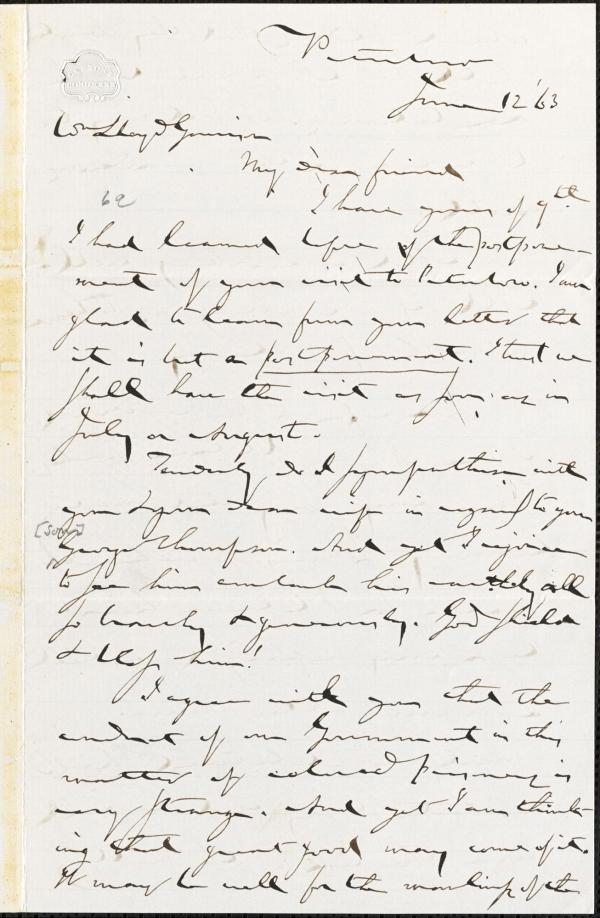 Peterboro
June 12 '63
Wm Lloyd Garrison
My dear friend
69
I have yours of 9th.
I had learned before of the postpone-
ment of your visit to Peterboro. I am
glad to learn from your letter that
it is but a postponement. I trust we
shall have the visit as soon as in
July or August.
Tenderly do I sympathise with
you & your dear wife in regard to your
[son]
George Thompson. And yet I rejoice
to see him his all
so bravely & generously. God shield
& bless him!
I agree with you that the
conduct of our Government in this
matter of colored prisoners is
very strange. And yet I am think-
ing that great good may come of it.
It may be well for the of the